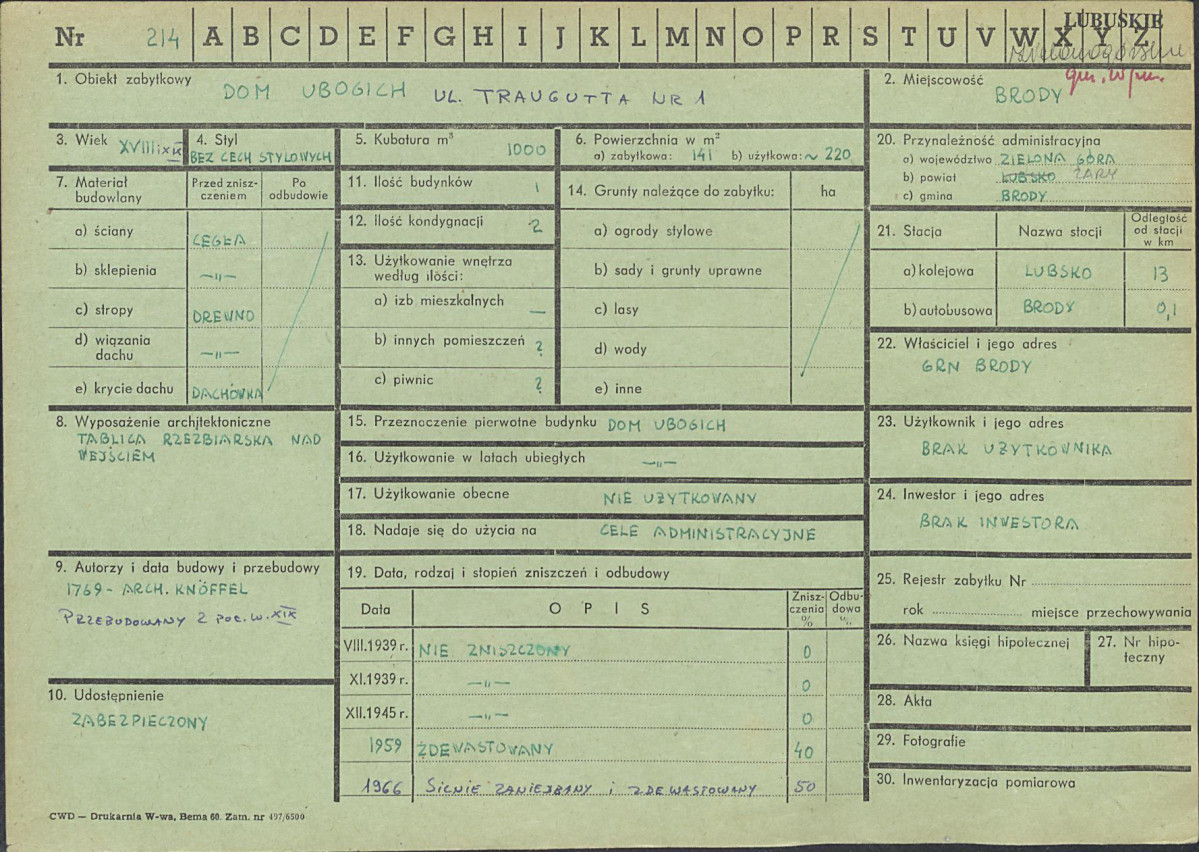 Nr 214 A B C D E F G H I J K L M N O P R S T U V W X Y Z
LUBUSKIE
1. Obiekt zabytkowy
DOM UBOGICH UL. TRAUGUTTA NR 1
2. Miejscowość
BRODY
3. Wiek XVIII i XIX
4. Styl
BEZ CECH STYLOWYCH
5. Kubatura m³
1000
6. Powierzchnia w m²
a) zabytkowa: 141 b) użytkowa: ~ 220
20. Przynależność administracyjna
a) województwo ZIELONA GÓRA
b) powiat LUBSKO ŻARY
c) gmina BRODY
7. Materiał budowlany
Przed zniszczeniem
Po odbudowie
a) ściany CEGŁA
b) sklepienia —„—
c) stropy DREWNO
d) wiązania dachu —„—
e) krycie dachu DACHÓWKA
11. Ilość budynków 1
12. Ilość kondygnacji 2
13. Użytkowanie wnętrza
według ilości:
a) izb mieszkalnych —
b) innych pomieszczeń ?
c) piwnic ?
14. Grunty należące do zabytku: ha
a) ogrody stylowe
b) sady i grunty uprawne
c) lasy
d) wody
e) inne
21. Stacja Nazwa stacji Odległość od stacji w km
a) kolejowa LUBSKO 13
b) autobusowa BRODY 0,1
22. Właściciel i jego adres
GRN BRODY
8. Wyposażenie architektoniczne
TABLICA RZEŹBIARSKA NAD
WEJŚCIEM
15. Przeznoczenie pierwotne budynku DOM UBOGICH
16. Użytkowanie w latach ubiegłych —„—
17. Użytkowanie obecne NIE UŻYTKOWANY
18. Nadaje się do użycia na CELE ADMINISTRACYJNE
23. Użytkownik i jego adres
BRAK UŻYTKOWNIKA
24. Inwestor i jego adres
BRAK INWESTORA
9. Autorzy i data budowy i przebudowy
1769 - ARCH. KNÖFFEL
PRZEBUDOWANY 2 POŁ. W. XIX
10. Udostępnienie
ZABEZPIECZONY
19. Data, rodzaj i stopień zniszczeń i odbudowy
Data OPIS Zniszczenia % Odbudowa %
VIII.1939 r. NIE ZNISZCZONY 0
XI.1939 r. —„— 0
XII.1945 r. —„— 0
1959 ZDEWASTOWANY 40
1966 SILNIE ZANIEDBANY I ZDEWASTOWANY 50
25. Rejestr zabytku Nr
rok miejsce przechowywania
26. Nazwa księgi hipotecznej
27. Nr hipoteczny
28. Akta
29. Fotografie
30. Inwentaryzacja pomiarowa
CWD — Drukarnia W-wa, Bema 60. Zam. nr 497/6500